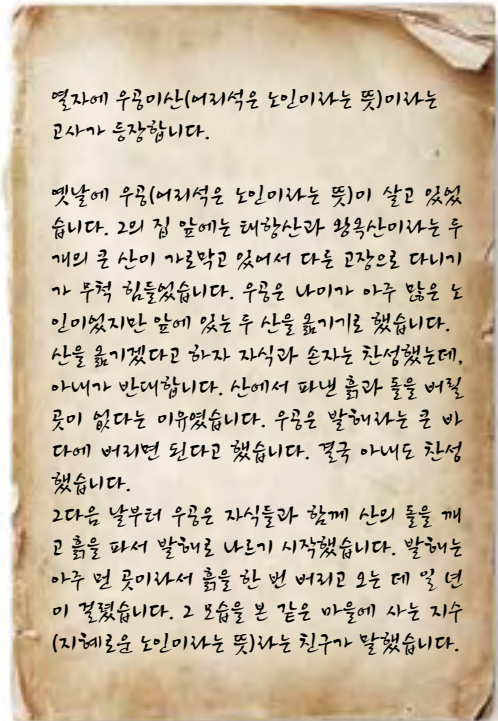 열자에 우공이산(어리석은 노인이라는 뜻)이라는
고사가 등장합니다.
옛날에 우공(어리석은 노인이라는 뜻)이 살고 있었
습니다. 그의 집 앞에는 태항산과 왕옥산이라는 두
개의 큰 산이 가로막고 있어서 다른 고장으로 다니기
가 무척 힘들었습니다. 우공은 나이가 아주 많은 노
인이었지만 앞에 있는 두 산을 옮기기로 했습니다.
산을 옮기겠다고 하자 자식과 손자는 찬성했는데,
아내가 반대합니다. 산에서 파낸 흙과 돌을 버릴
곳이 없다는 이유였습니다. 우공은 발해라는 큰 바
다에 버리면 된다고 했습니다. 결국 아내도 찬성
했습니다.
그다음 날부터 우공은 자식들과 함께 산의 돌을 깨
고 흙을 파서 발해로 나르기 시작했습니다. 발해는
아주 먼 곳이라서 흙을 한 번 버리고 오는 데 일 년
이 걸렸습니다. 그 모습을 본 같은 마을에 사는 지수
(지혜로운 노인이라는 뜻)라는 친구가 말했습니다.